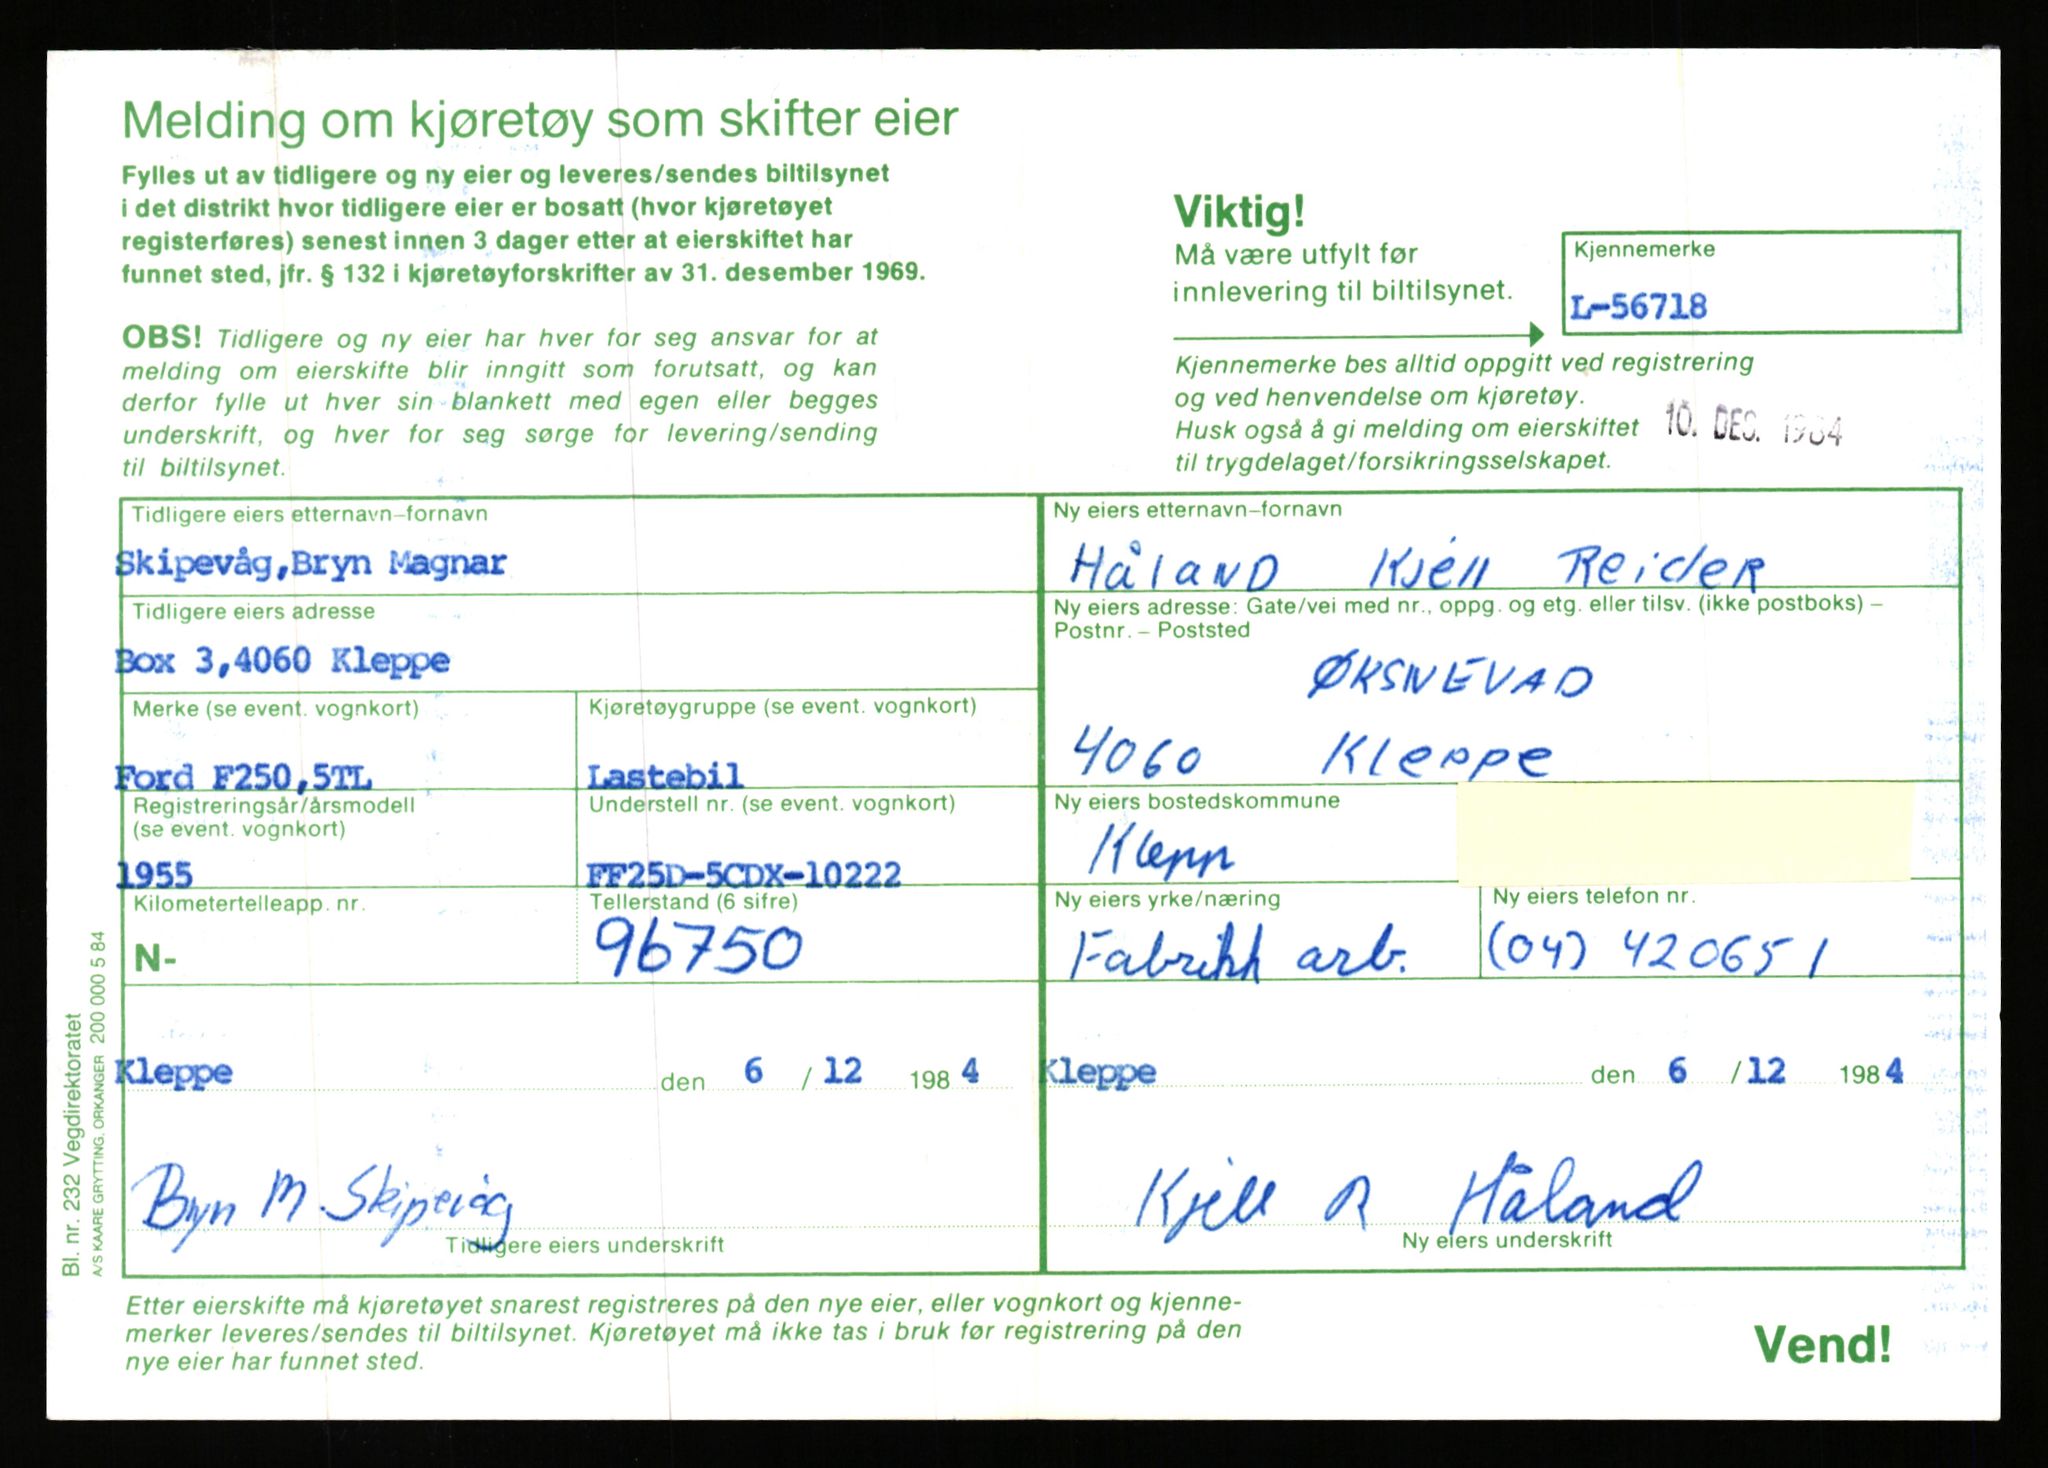 Melding om kjøretøy som skifter eier
Fylles ut av tidligere og ny eier og leveres/sendes biltilsynet
i det distrikt hvor tidligere eier er bosatt (hvor kjøretøyet
registerføres) senest innen 3 dager etter at eierskiftet har
funnet sted, jfr. § 132 i kjøretøyforskrifter av 31. desember 1969.
OBS! Tidligere og ny eier har hver for seg ansvar for at
melding om eierskifte blir inngitt som forutsatt, og kan
derfor fylle ut hver sin blankett med egen eller begges
underskrift, og hver for seg sørge for levering/sending
til biltilsynet.
Viktig!
Må være utfylt før
innlevering til biltilsynet.
Kjennemerke
L-56718
Kjennemerke bes alltid oppgitt ved registrering
og ved henvendelse om kjøretøy.
Husk også å gi melding om eierskiftet
til trygdelaget/forsikringsselskapet.
10. DES. 1984
Tidligere eiers etternavn–fornavn
Skipevåg,Bryn Magnar
Tidligere eiers adresse
Box 3,4060 Kleppe
Merke (se event. vognkort)
Ford F250,5TL
Kjøretøygruppe (se event. vognkort)
Lastebil
Registreringsår/årsmodell
(se event. vognkort)
1955
Understell nr. (se event. vognkort)
FF25D-5CDX-10222
Kilometertelleapp. nr.
N-
Tellerstand (6 sifre)
96750
Kleppe den 6 / 12 1984
Bryn M. Skipevåg
Tidligere eiers underskrift
Ny eiers etternavn–fornavn
Håland Kjell Reider
Ny eiers adresse: Gate/vei med nr., oppg. og etg. eller tilsv. (ikke postboks) –
Postnr. – Poststed
ØKSNEVAD
4060 Kleppe
Ny eiers bostedskommune
Klepp
Ny eiers yrke/næring
Fabrikk arb.
Ny eiers telefon nr.
(04) 420651
Kleppe den 6 / 12 1984
Kjell R Håland
Ny eiers underskrift
Etter eierskifte må kjøretøyet snarest registreres på den nye eier, eller vognkort og kjenne-
merker leveres/sendes til biltilsynet. Kjøretøyet må ikke tas i bruk før registrering på den
nye eier har funnet sted.
Vend!
Bl. nr. 232 Vegdirektoratet
A/S KAARE GRYTTING, ORKANGER 200 000 5 84